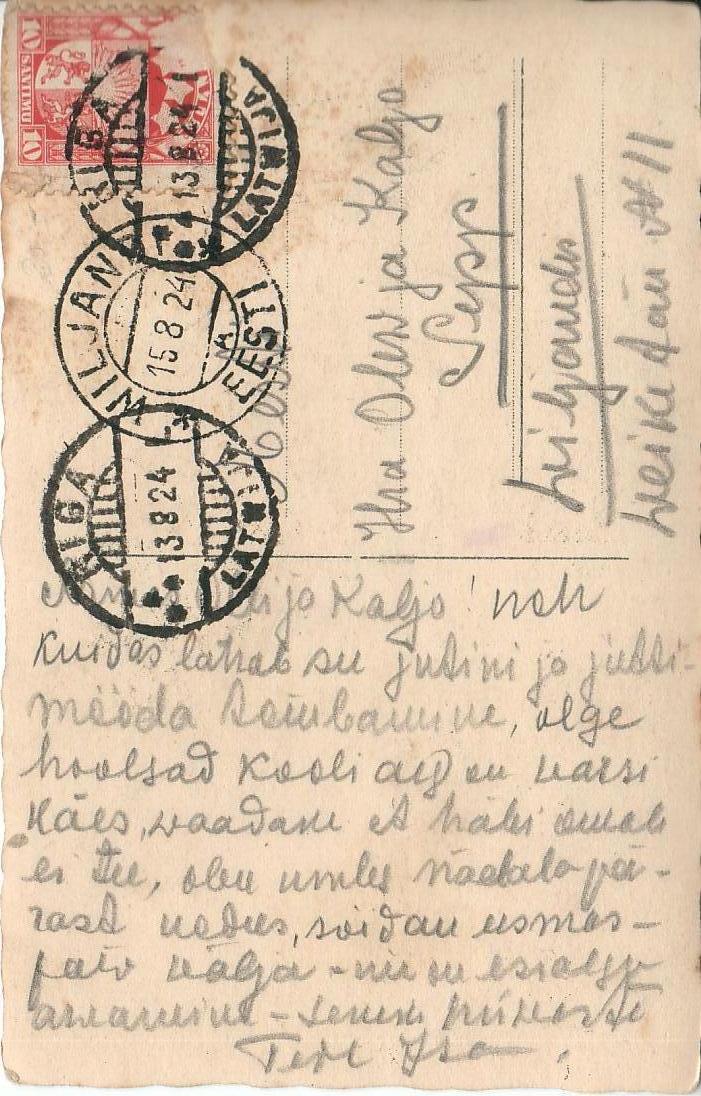 10 SANTIMU 10
RIGA
13 8 24
LATWIJA
WILJANDI
15 8 24
EESTI
RIGA
13 8 24
LATWIJA
Hra Olew ja Kaljo
Sepp
Wiljandis
Weike tän № 11
ja Kaljo! noh
kuidas su ja
mööda tõmbamine, olge
hoolsad kooli aeg on warsi
käes, waadake et häbi omale
ei tee, olen umbes nädala pä-
rast kodus, sõidan esmas-
päiv välja - nii on esialgu
arwamine - Senini
Teie Isa